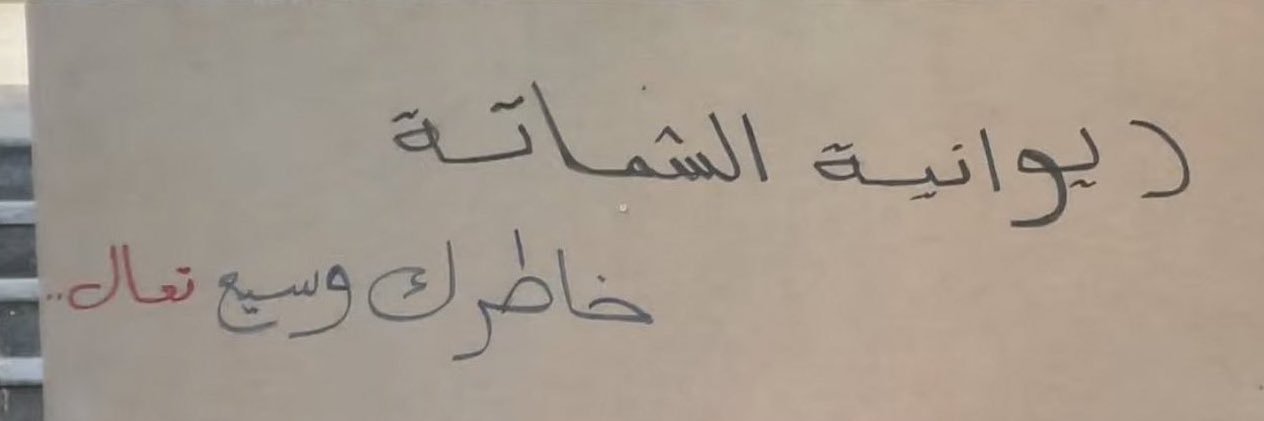 ديوانية الشماتة
خاطرك وسيع تعال..